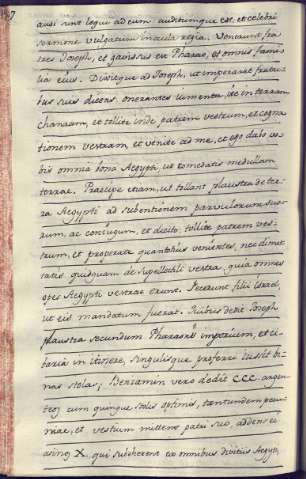 ausi sunt loqui ad eum auditumque est, et celebri
sermone vulgatum in aula regia. Venerunt fra-
tres Joseph, et gavisus est Pharao, et omnis fami-
lia eius. Dixitque ad Joseph, ut imperaret fratri-
bus suis dicens: onerantes iumenta, ite in terram
chanaam, et tollite inde patrem vestrum, et cogna-
tionem vestram et venite ad me, et ego dabo vo-
bis omnia bona Aegypti, ut comedatis medullam
terrae. Praecipe etiam, ut tollant plaustra de ter-
ra Aegypti ad subventionem parvulorum suo-
rum, ac coniugum, et dicito: tollite patrem ves-
trum, et properate quantocius venientes, nec dimit-
tatis quidquam de supellectili vestra, quia omnes
opes Aegypti vestrae erunt. Fecerunt filii Israel,
ut eis mandatum fuerat. Quibus dedit Joseph
plaustra secundum Pharaonis imperium, et ci-
baria in itinere, singulisque proferri iussit bi-
nas stolas, Beniamin vero dedit CCC. argen-
teos cum quinque stolis optimis, tantundem pecu-
niae, et vestium mittens patri suo, addens ei
asinos X. qui subveherent ex omnibus divitiis Aegypti,